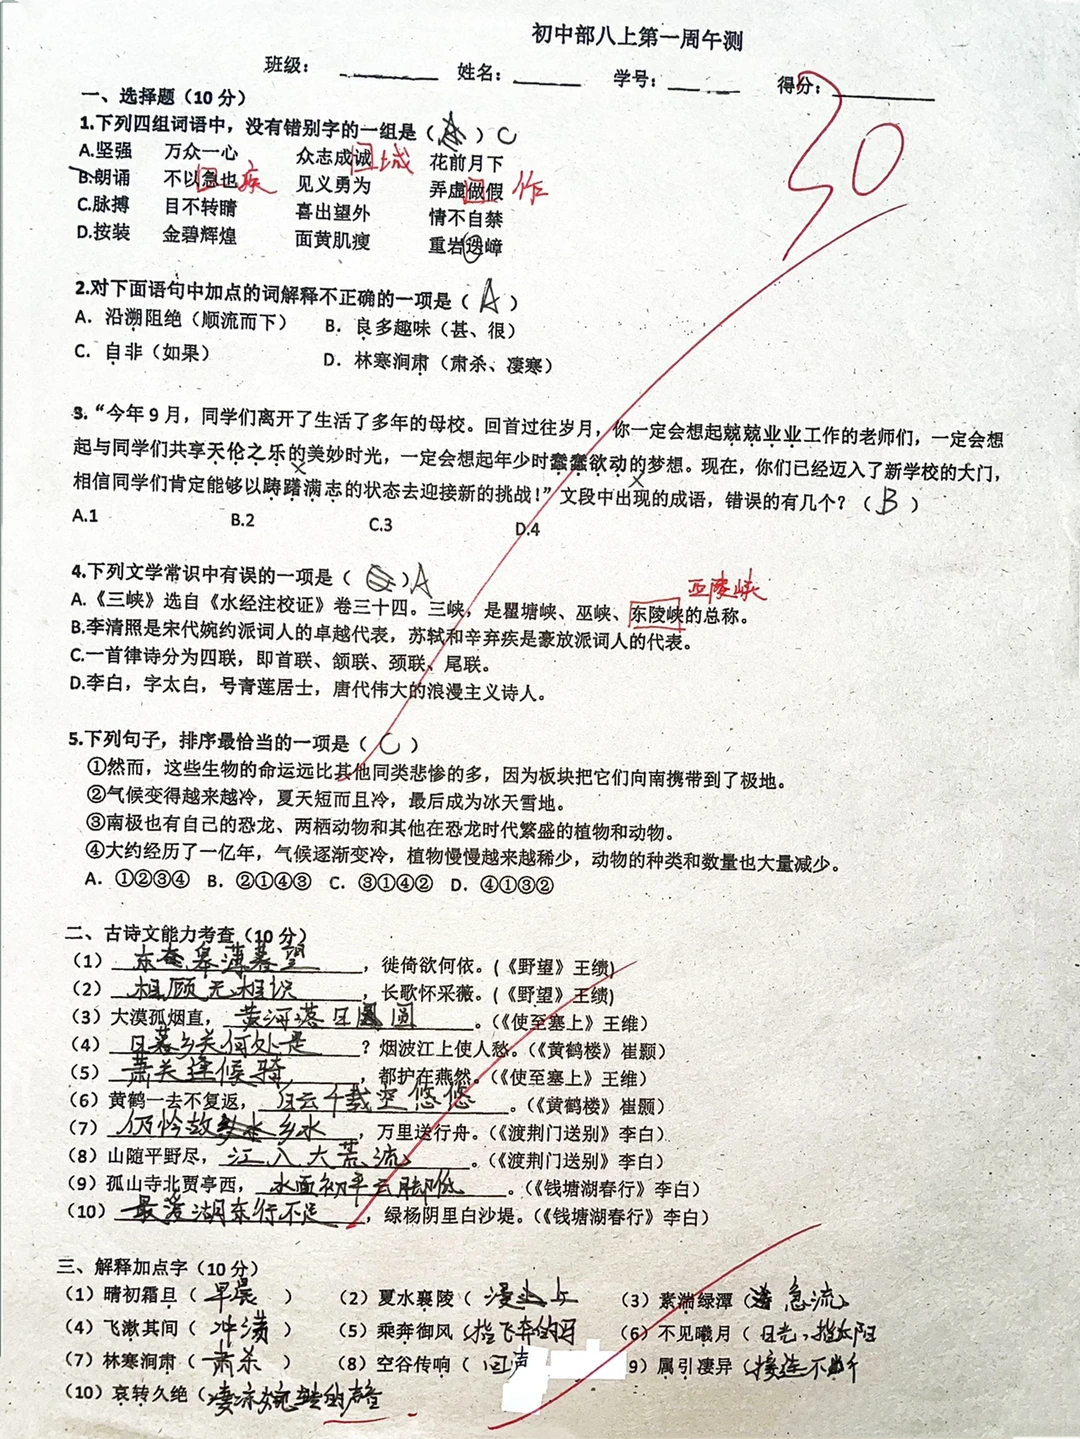 初中部八上第一周午测
班级： 姓名： 学号： 得分： 30
一、选择题（10 分）
1.下列四组词语中，没有错别字的一组是（ ）C
A.坚强 万众一心 众志成诚 城 花前月下
B.朗诵 不以急也 疾 见义勇为 弄虚做假 作
C.脉搏 目不转睛 喜出望外 情不自禁
D.按装 金碧辉煌 面黄肌瘦 重岩迭嶂
2.对下面语句中加点的词解释不正确的一项是（ A ）
A．沿溯阻绝（顺流而下） B．良多趣味（甚、很）
C．自非（如果） D．林寒涧肃（肃杀、凄寒）
3.“今年 9 月，同学们离开了生活了多年的母校。回首过往岁月，你一定会想起兢兢业业工作的老师们，一定会想
起与同学们共享天伦之乐的美妙时光，一定会想起年少时蠢蠢欲动的梦想。现在，你们已经迈入了新学校的大门，
相信同学们肯定能够以踌躇满志的状态去迎接新的挑战！”文段中出现的成语，错误的有几个？（ B ）
A.1 B.2 C.3 D.4
4.下列文学常识中有误的一项是（ ）A
A.《三峡》选自《水经注校证》卷三十四。三峡，是瞿塘峡、巫峡、东陵峡的总称。
B.李清照是宋代婉约派词人的卓越代表，苏轼和辛弃疾是豪放派词人的代表。
C.一首律诗分为四联，即首联、颔联、颈联、尾联。
D.李白，字太白，号青莲居士，唐代伟大的浪漫主义诗人。
5.下列句子，排序最恰当的一项是（ C ）
①然而，这些生物的命运远比其他同类悲惨的多，因为板块把它们向南携带到了极地。
②气候变得越来越冷，夏天短而且冷，最后成为冰天雪地。
③南极也有自己的恐龙、两栖动物和其他在恐龙时代繁盛的植物和动物。
④大约经历了一亿年，气候逐渐变冷，植物慢慢越来越稀少，动物的种类和数量也大量减少。
A．①②③④ B．②①④③ C．③①④② D．④①③②
二、古诗文能力考查（10 分）
（1）东皋薄暮望，徙倚欲何依。(《野望》王绩)
（2）相顾无相识，长歌怀采薇。(《野望》王绩)
（3）大漠孤烟直，黄河落日圆。(《使至塞上》王维）
（4）日暮乡关何处是？烟波江上使人愁。(《黄鹤楼》崔颢）
（5）萧关逢候骑，都护在燕然。(《使至塞上》王维）
（6）黄鹤一去不复返，白云千载空悠悠。(《黄鹤楼》崔颢）
（7）仍怜故乡水，万里送行舟。(《渡荆门送别》李白）
（8）山随平野尽，江入大荒流。(《渡荆门送别》李白）
（9）孤山寺北贾亭西，水面初平云脚低。(《钱塘湖春行》李白）
（10）最爱湖东行不足，绿杨阴里白沙堤。(《钱塘湖春行》李白）
三、解释加点字（10 分）
（1）晴初霜旦（早晨） （2）夏水襄陵（漫上） （3）素湍绿潭（急流）
（4）飞漱其间（冲荡） （5）乘奔御风（指飞奔的马 （6）不见曦月（日光，指太阳
（7）林寒涧肃（肃杀） （8）空谷传响（回声 9）属引凄异（接连不断
（10）哀转久绝（凄凉婉转的声音